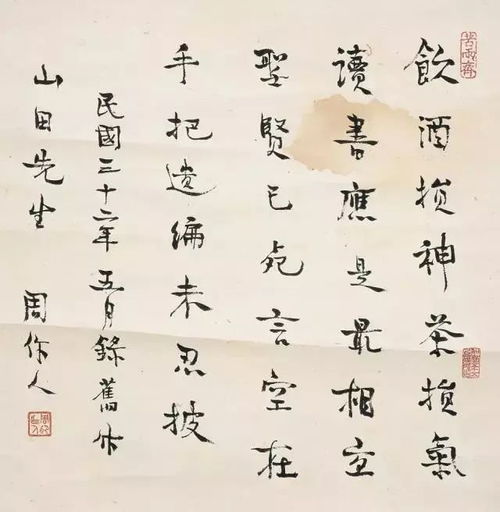 飲酒損神茶損氣
讀書應是最相宜
聖賢已死言空在
手把遺編未忍披
民國三十二年五月錄舊作
山田先生
周作人